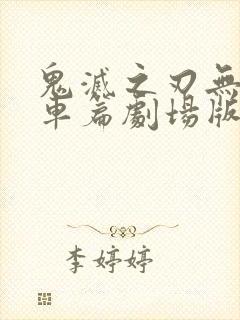 鬼滅之刃無
車篇劇場版
李婷婷